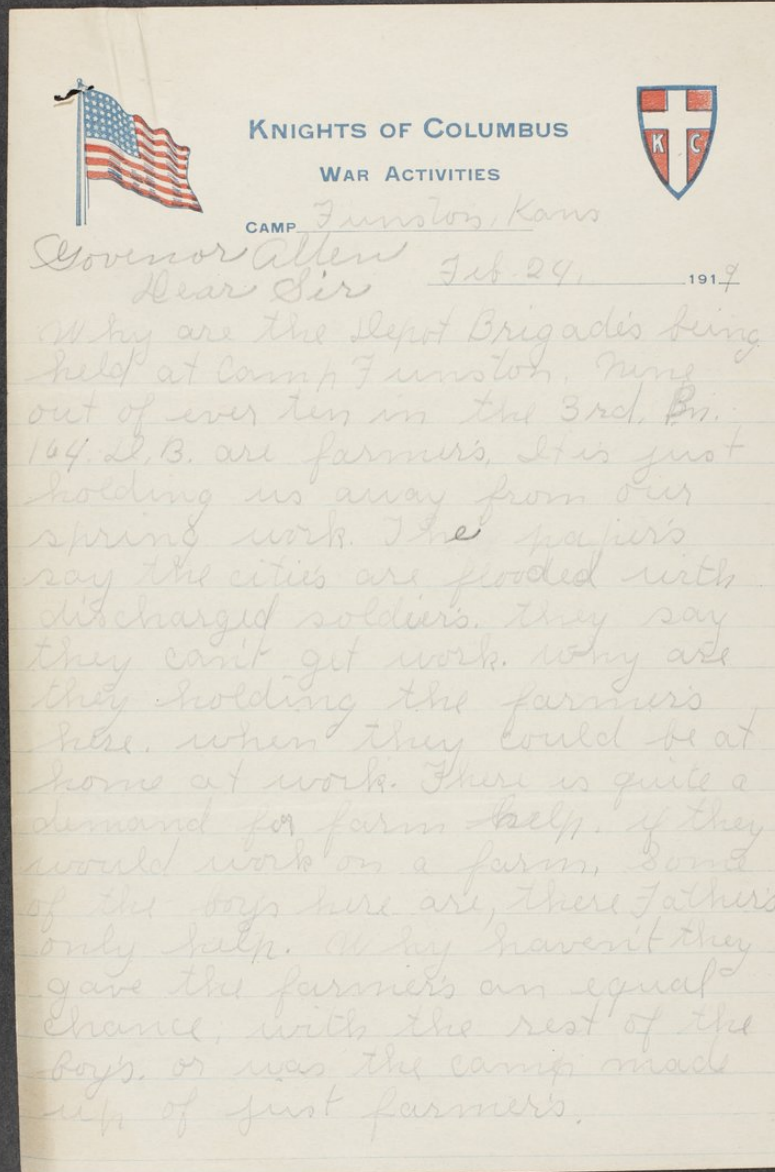 KNIGHTS OF COLUMBUS
WAR ACTIVITIES
K C
CAMP Funston, Kans
Govenor Allen
Feb. 24, 1919
Dear Sir
Why are the Depot Brigade's being
held at Camp Funston. Nine
out of ever ten in the 3rd. Bn.
164. D.B. are farmer's. It is just
holding us away from our
spring work. The paper's
say the citie's are flooded with
discharged soldier's. they say
they can't get work. why are
they holding the farmer's
here. when they could be at
home at work. There is quite a
demand for farm help. if they
would work on a farm. Some
of the boys here are, there Father's
only help. Why haven't they
gave the farmer's an equal
chance, with the rest of the
boy's. or was the camp mad
up of just farmer's.